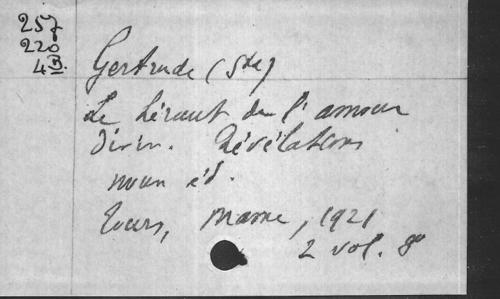 257
220
4 B.
Gertrude (Ste)
Le héraut de l'amour
divin. Révélations
nouv éd.
Tours, Mame, 1921
2 vol. 8º